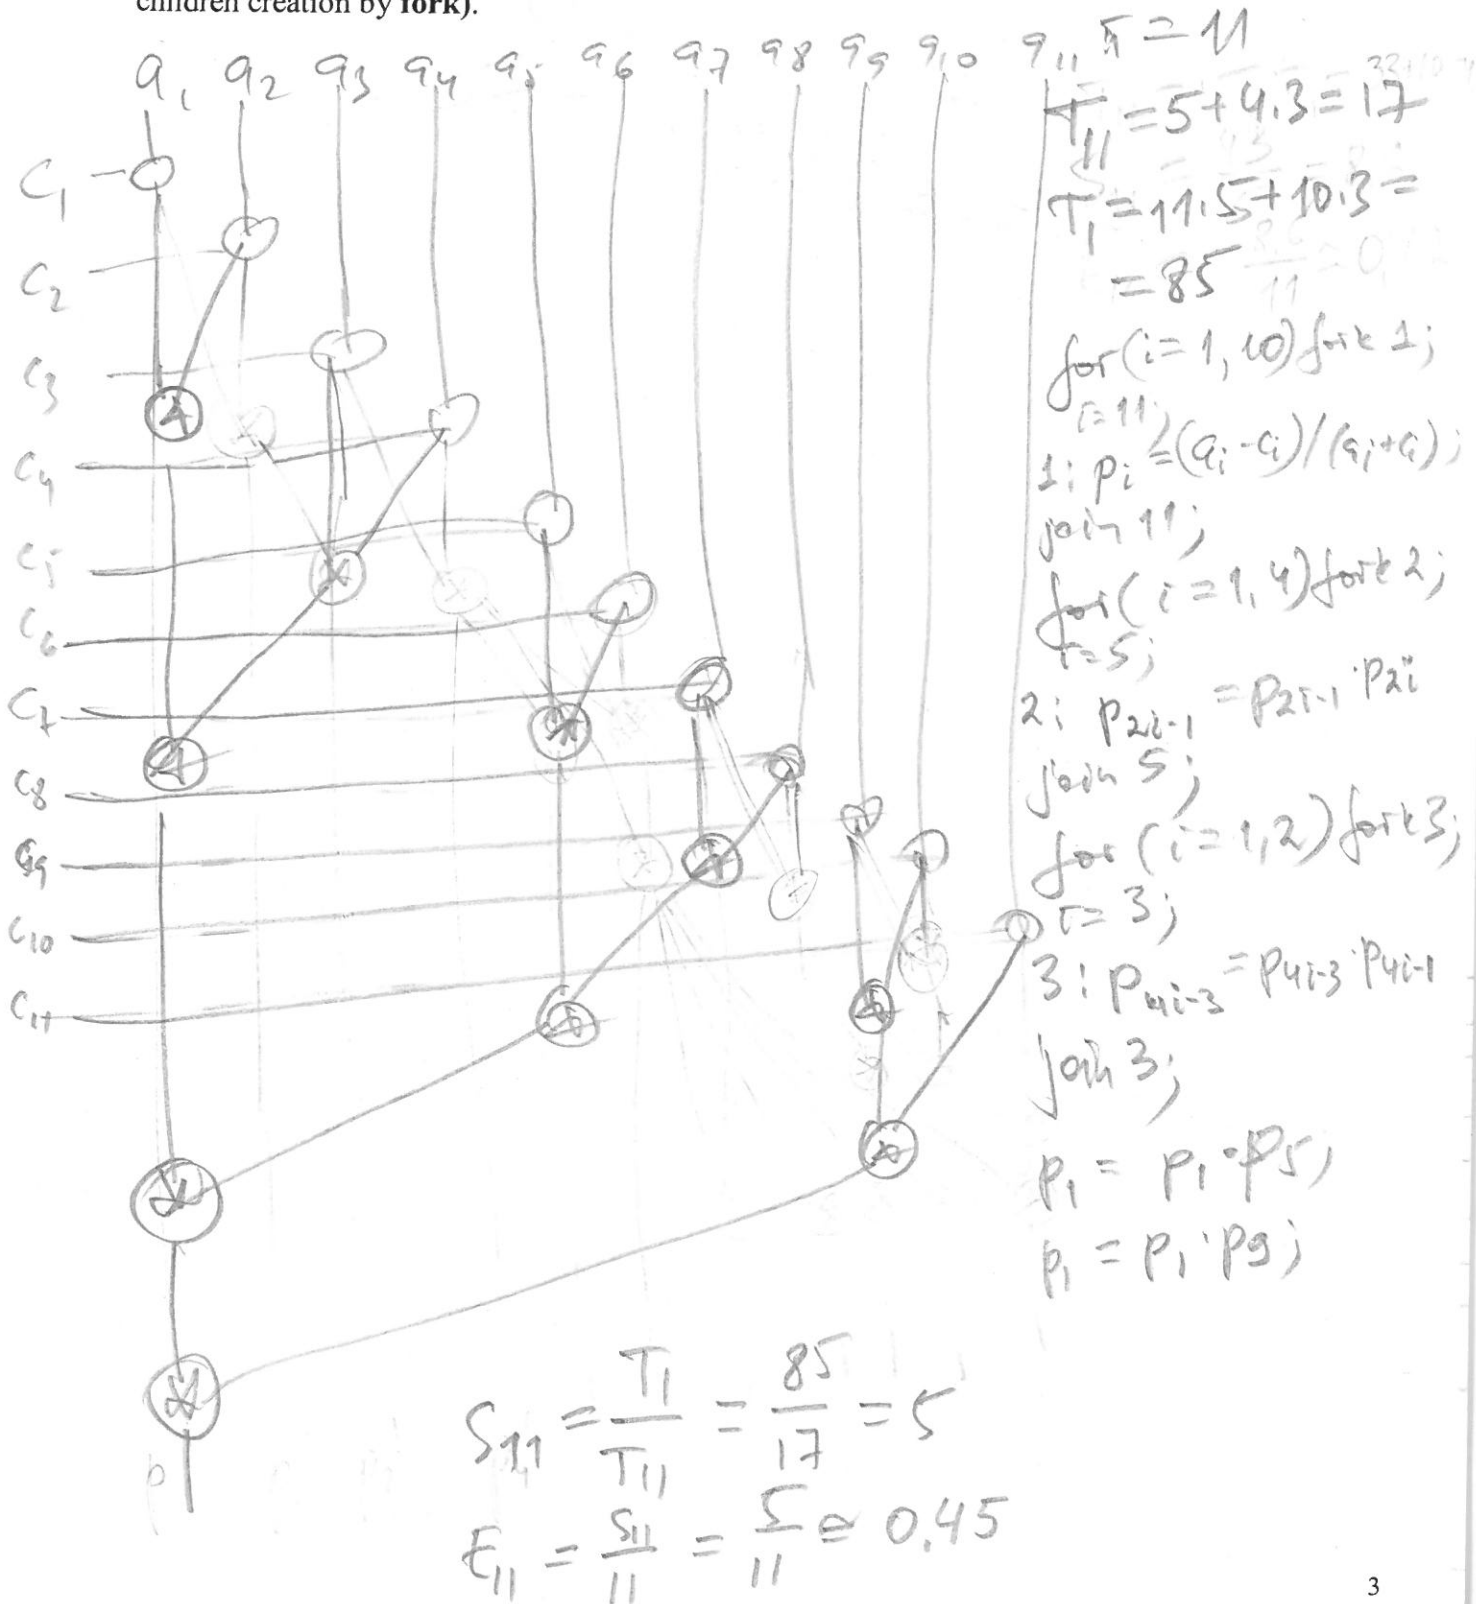 children creation by fork).
a₁ a₂ a₃ a₄ a₅ a₆ a₇ a₈ a₉ a₁₀ a₁₁
C₁
C₂
C₃
C₄
C₅
C₆
C₇
C₈
C₉
C₁₀
C₁₁
= 11
T₁₁ = 5+4.3 = 17
T₁ = 11.5+10.3 =
= 85
for(i=1,10) fork 1;
i=11;
1: pᵢ =(aᵢ-cᵢ)/(aᵢ+cᵢ);
join 11;
for(i=1,4) fork 2;
i=5;
2: p₂ᵢ₋₁ = p₂ᵢ₋₁ · p₂ᵢ
join 5;
for(i=1,2) fork 3;
i=3;
3: p₄ᵢ₋₃ = p₄ᵢ₋₃ · p₄ᵢ₋₁
join 3;
p₁ = p₁ · p₅;
p₁ = p₁ · p₉;
S₁₁ = T₁/T₁₁ = 85/17 = 5
E₁₁ = S₁₁/11 = 5/11 ≅ 0.45
3